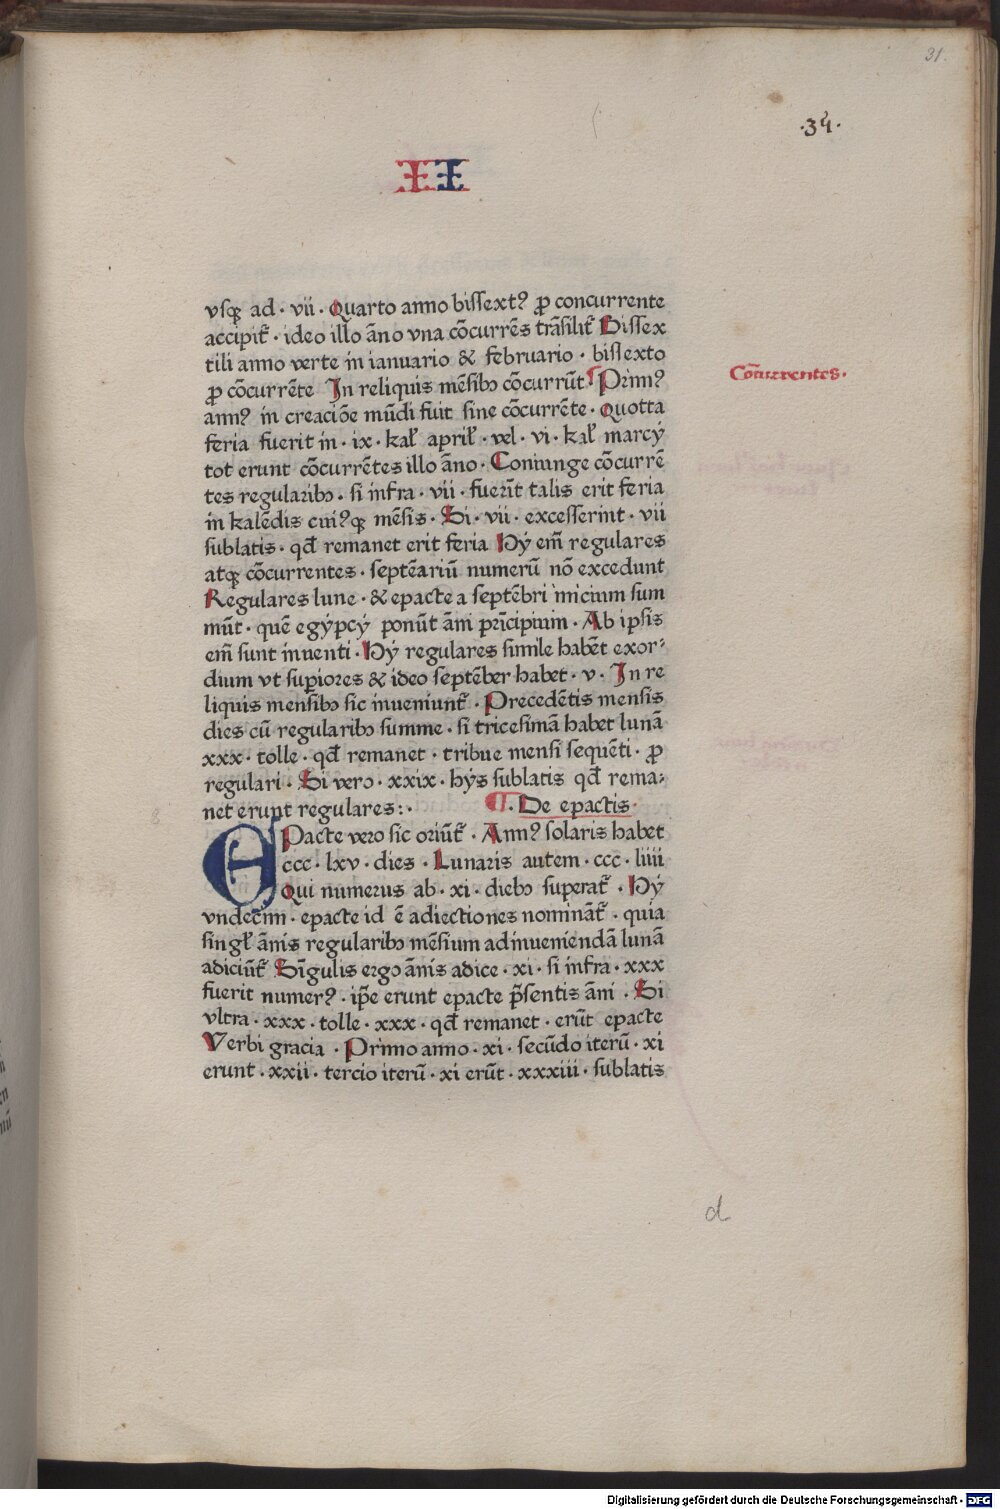 31.
·34·
II
vsqꝫ ad · vii · Quarto anno bissextꝰ ꝓ concurrente
accipit᷑ · ideo illo āno vna cōcurrēs trāsilit᷑ Bissex
tili anno verte in ianuario & februario · bissexto
ꝓ cōcurrēte In reliquis mēsibꝫ cōcurrūt Primꝰ
Cōcurrentes·
annꝰ in creaciōe mūdi fuit sine cōcurrēte · Quotta
feria fuerit in · ix · kaƚ apriƚ · vel · vi · kaƚ marcÿ
tot erunt cōcurrētes illo āno · Coniunge cōcurrē
tes regularibꝫ · si infra · vii · fuerīt talis erit feria
in kalēdis cuiꝰqꝫ mēsis · Si · vii · excesserint · vii
sublatis · qd̄ remanet erit feria Hÿ em̄ regulares
atqꝫ cōcurrentes · septēariū numerū nō excedunt
Regulares lune · & epacte a septēbri inicium sum
mūt · quē egÿpcÿ ponūt āni prīcipium · Ab ipsis
em̄ sunt inventi · Hÿ regulares simile habēt exor⸗
dium vt supiores & ideo septēber habet · v · In re
liquis mensibꝫ sic inveniunt᷑ · Precedētis mensis
dies cū regularibꝫ summe · si tricesimā habet lunā
xxx · tolle · qd̄ remanet · tribue mensi sequēti · ꝓ
regulari · Si vero · xxix · hÿs sublatis qd̄ rema⸗
net erunt regulares : · ¶ · De epactis ·
EPacte vero sic oriūt᷑ · Annꝰ solaris habet
ccc · lxv · dies · Lunaris autem · ccc · liiii
Qui numerus ab · xi · diebꝫ superat᷑ · Hÿ
vndecim · epacte id ē adiectiones nomināt᷑ · quia
singƚ ānis regularibꝫ mēsium ad inveniendā lunā
adiciūt᷑ Singulis ergo ānis adice · xi · si infra · xxx
fuerit numerꝰ · ip̄e erunt epacte p̄sentis āni · Si
vltra · xxx · tolle · xxx · qd̄ remanet · erūt epacte
Verbi gracia · Primo anno · xi · secūdo iterū · xi
erunt · xxii · tercio iterū · xi erūt · xxxiii · sublatis
d
Digitalisierung gefördert durch die Deutsche Forschungsgemeinschaft · DFG